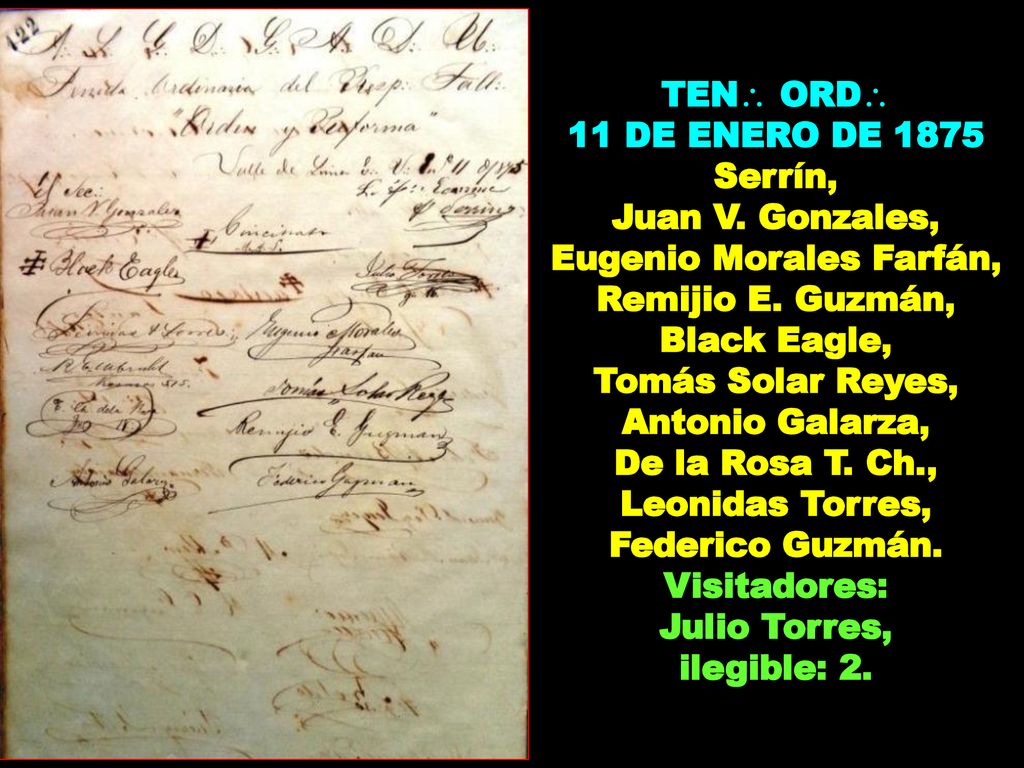 122
A∴ L∴ G∴ D∴ G∴ A∴ D∴ U∴
Tenida Ordinaria del Resp∴ Tall∴
"Orden y Reforma"
Valle de Lima E∴ V∴ En° 11 de 1875
El Sec∴
Juan V. Gonzales
Serrin
Cincinato
Black Eagle
Julio Torres
Leonidas Torres
Eugenio Morales
Farfan
Tomás Solar Reyes
T. Ch. de la Rosa
Remijio E. Guzman
Antonio Galarza
Federico Guzman
TEN∴ ORD∴
11 DE ENERO DE 1875
Serrín,
Juan V. Gonzales,
Eugenio Morales Farfán,
Remijio E. Guzmán,
Black Eagle,
Tomás Solar Reyes,
Antonio Galarza,
De la Rosa T. Ch.,
Leonidas Torres,
Federico Guzmán.
Visitadores:
Julio Torres,
ilegible: 2.